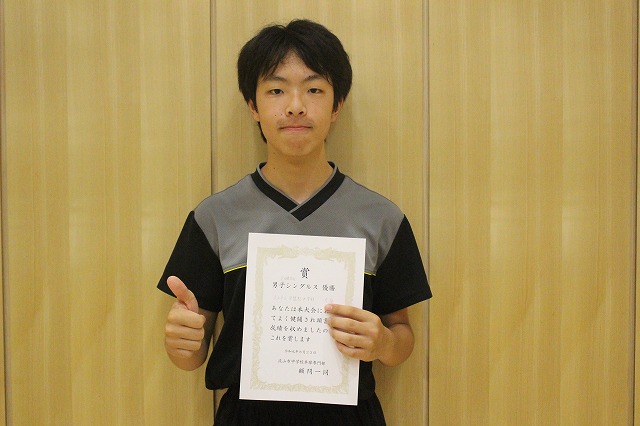 賞
男子シングルス 優勝
あなたは本大会に
てよく健闘され頭書
成績を収めましたの
これを賞します
流山市中学校卓球専門部
顧問一同